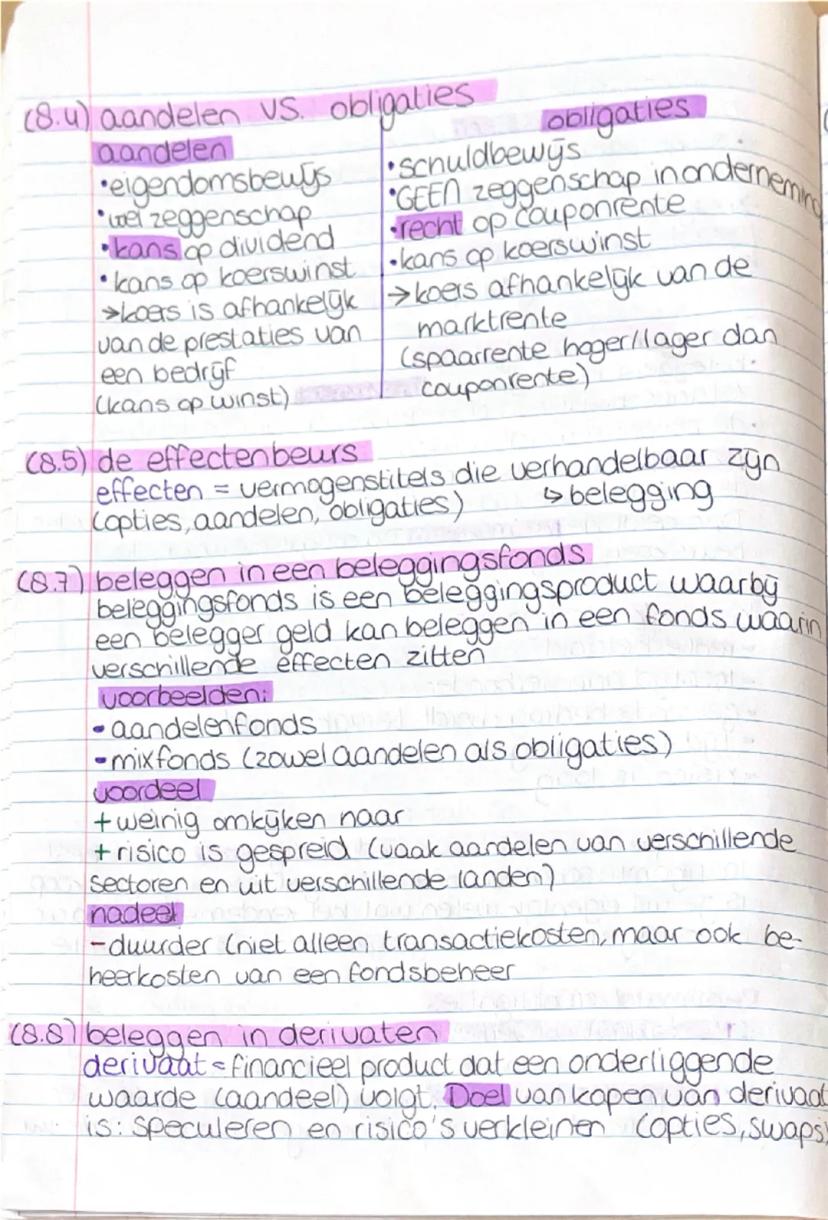 (8.4) aandelen VS. obligaties
aandelen
• eigendomsbewijs
• wel zeggenschap
• kans op dividend
• kans op koerswinst
→ koers is afhankelijk
van de prestaties van
een bedrijf
(kans op winst)
obligaties
• schuldbewijs
• GEEN zeggenschap in onderneming
• recht op couponrente
• kans op koerswinst
→ koers afhankelijk van de
marktrente
(spaarrente hoger//lager dan
couponrente)
(8.5) de effectenbeurs
effecten = vermogenstitels die verhandelbaar zijn
(opties, aandelen, obligaties) ↳ belegging
(8.7) beleggen in een beleggingsfonds
beleggingsfonds is een beleggingsproduct waarbij
een belegger geld kan beleggen in een fonds waarin
verschillende effecten zitten
voorbeelden:
- aandelenfonds
- mixfonds (zowel aandelen als obligaties)
voordeel
+ weinig omkijken naar
+ risico is gespreid (vaak aardelen van verschillende
sectoren en uit verschillende landen)
nadeel
- duurder (niet alleen transactiekosten, maar ook be-
heerkosten van een fondsbeheer
(8.8) beleggen in derivaten
derivaat = financieel product dat een onderliggende
waarde (aandeel) volgt. Doel van kopen van derivaat
is: speculeren en risico's verkleinen (opties, swaps)